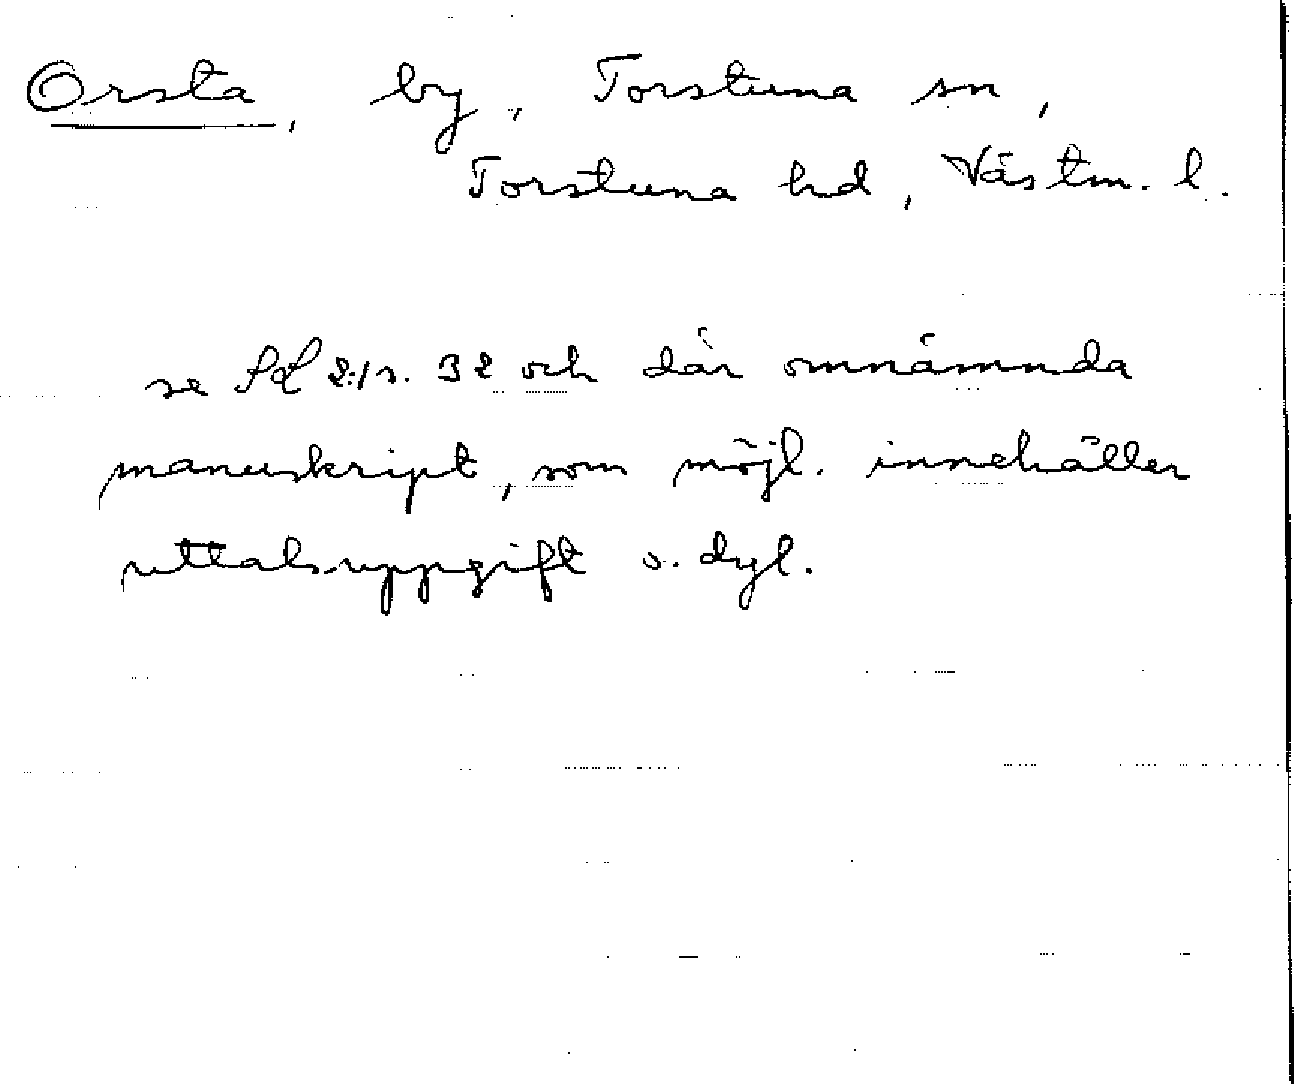 Orsta, by, Torstuna sn,
Torstuna hd, Västm. l.
se SOL 2:1 s. 32 och där omnämnda
manuskript, som möjl. innehåller
uttalsuppgift o. dyl.